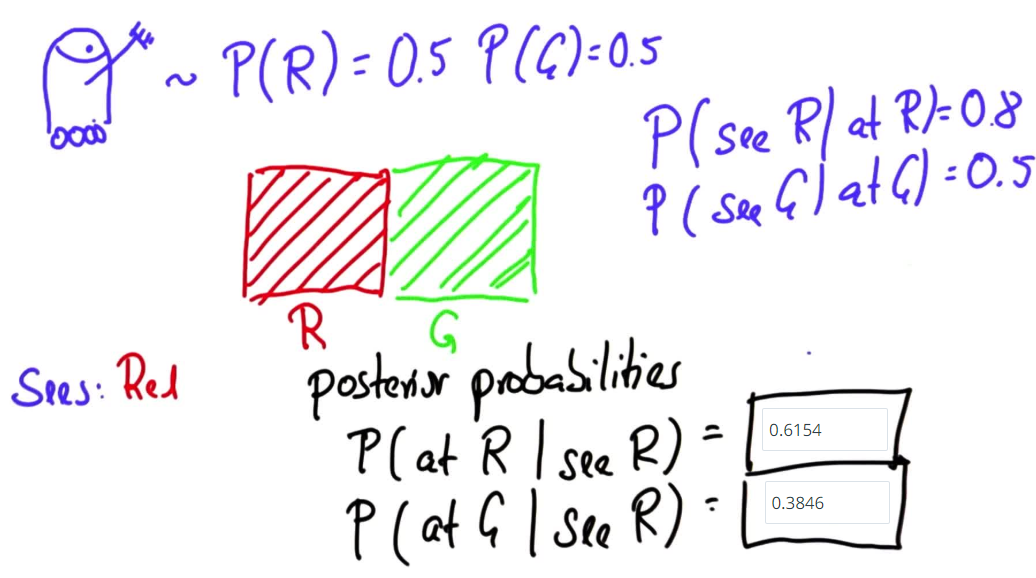 ~ P(R) = 0.5 P(G)=0.5
P(see R| at R)=0.8
P(see G| at G)=0.5
R G
Sees: Red
posterior probabilities
P(at R | see R) = 0.6154
P(at G | see R) = 0.3846